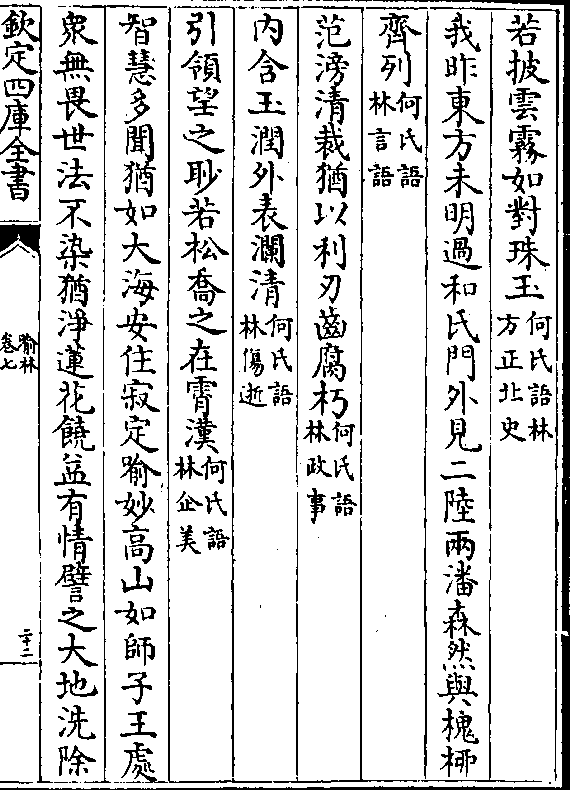 若披雲霧如對珠玉何氏語林方正北史
我昨東方未明過和氏門外見二陸兩潘森然與槐柳
齊列何氏語林言語
范滂清裁猶以利刃齒腐朽何氏語林政事
内含玉潤外表瀾清何氏語林傷逝
引領望之眇若松喬之在霄漢何氏語林企美
智慧多聞猶如大海安住寂定喻妙高山如師子王處
衆無畏世法不染猶淨蓮花饒益有情譬之大地洗除
欽定四庫全書
喻林
卷七
二十二